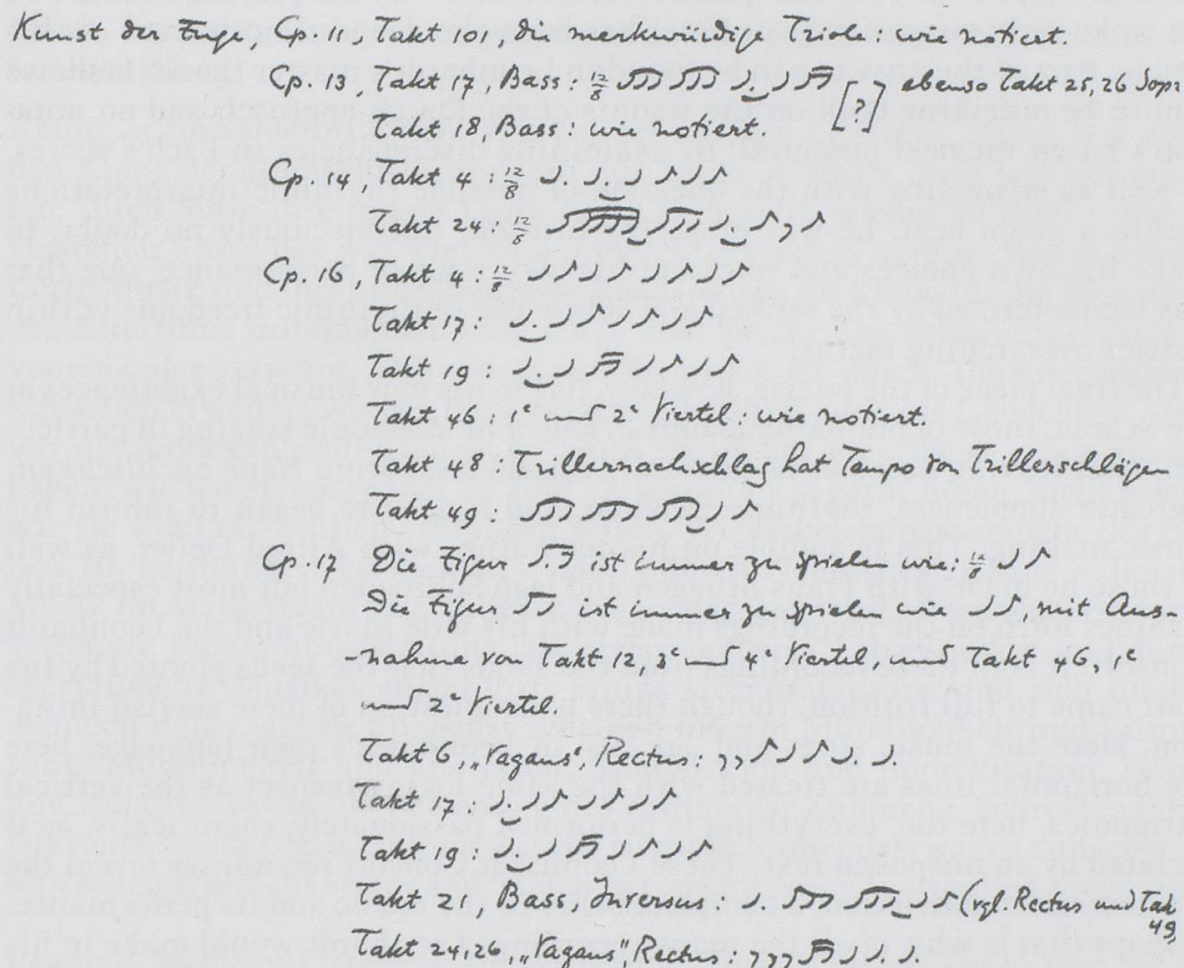 Kunst der Fuge, Cp. 11, Takt 101, die merkwürdige Triole: wie notiert.
Cp. 13, Takt 17, Bass: 12/8 [?] ebenso Takt 25, 26 Sopr
Takt 18, Bass: wie notiert.
Cp. 14 Takt 4: 12/8
Takt 24: 12/8
Cp. 16, Takt 4: 12/8
Takt 17:
Takt 19:
Takt 46: 1e und 2e Viertel: wie notiert.
Takt 48: Trillernachschlag hat Tempo von Trillerschlägen
Takt 49:
Cp. 17 Die Figur ist immer zu spielen wie: 12/8
Die Figur ist immer zu spielen wie, mit Aus-
-nahme von Takt 12, 3e und 4e Viertel, und Takt 46, 1e
und 2e Viertel.
Takt 6, „Vagans“, Rectus:
Takt 17:
Takt 19:
Takt 21, Bass, Inversus: (vgl. Rectus und Tak
49,
Takt 24, 26, „Vagans“, Rectus: